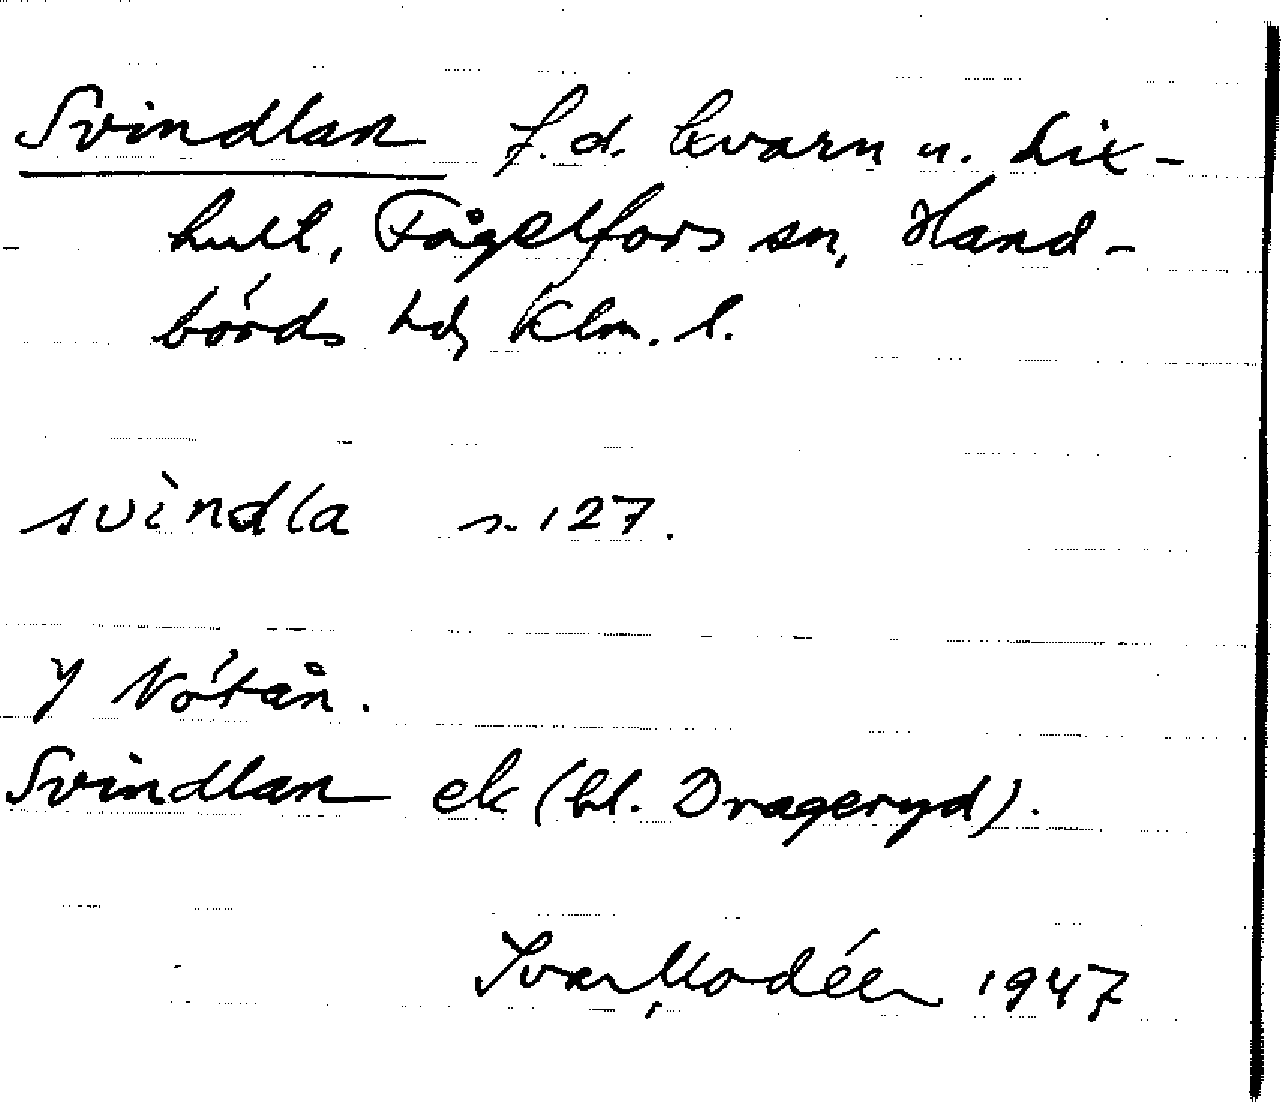 Svindlan f.d. kvarn u. Lix-
hult, Fågelfors sn, Hand-
börds hd, Klm. l.
svìndla s. 127.
Y Nötån.
Svindlan ek (bl. Drageryd).
Ivar Modéer 1947